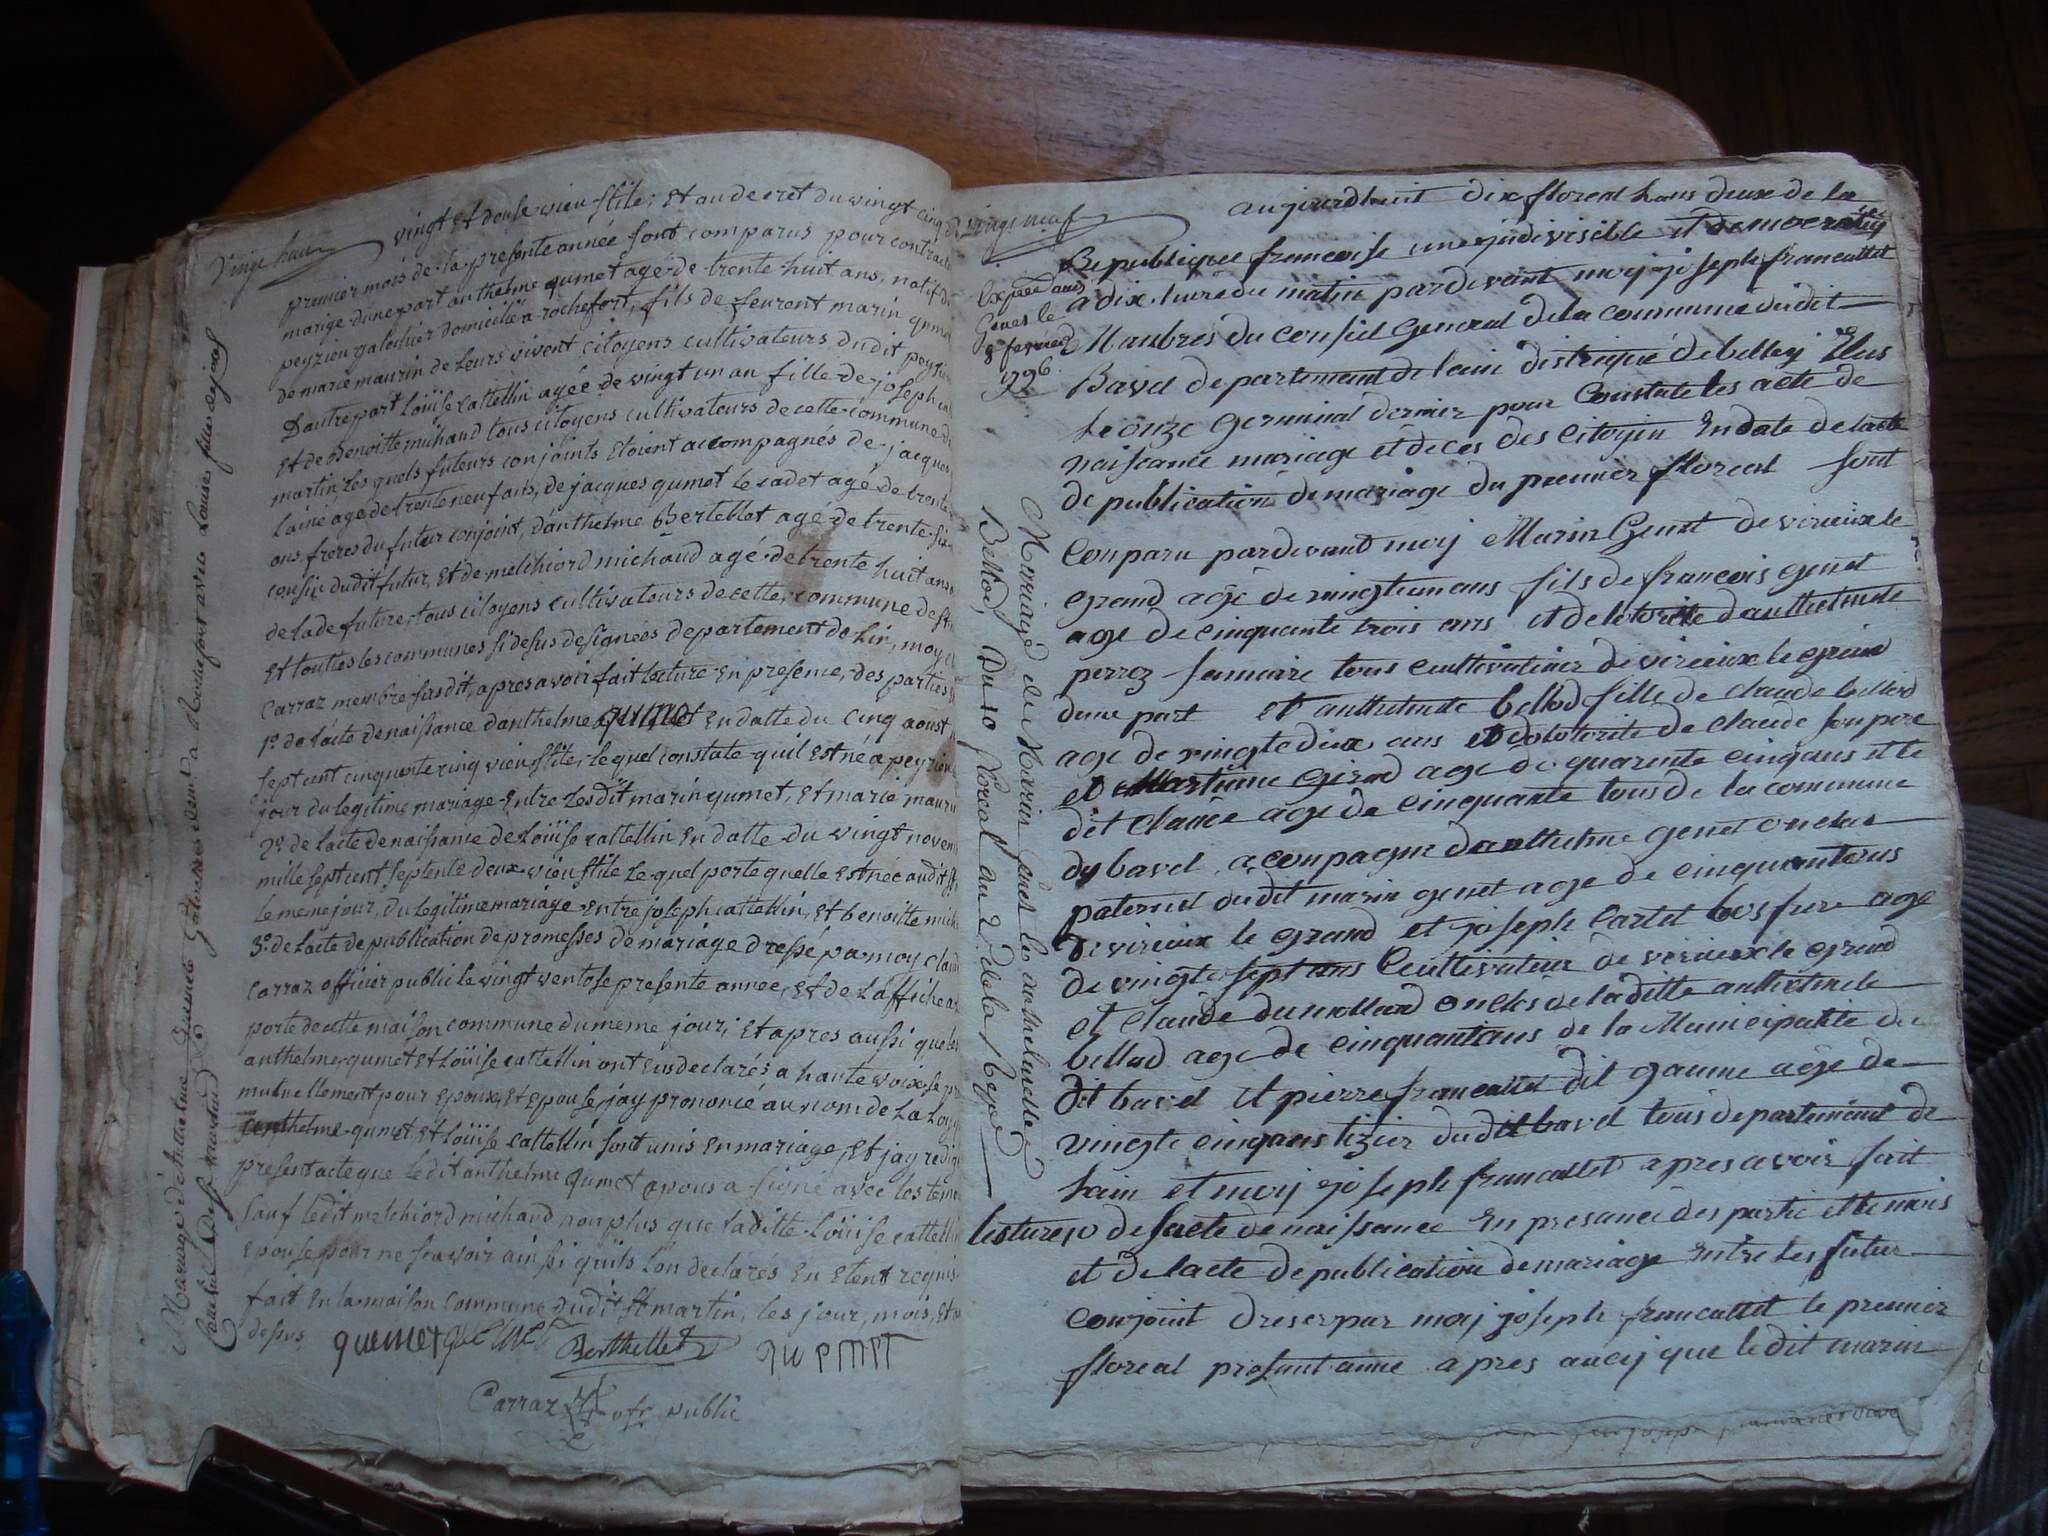 vingt huit
vingt et douse vieu stile; et au decret du vingt cinq
premier mois de la presente année sont comparus pour contracter
marige d'une part anthelme qumet agé de trente huit ans, natif de
peyzieu galochier domicilié a rochefort, fils de marin qumet
de marie maurin de leurs vivent citoyens cultivateurs dudit peyzieu
D'autre part Loüise cattellin agée de vingt un an fille de joseph
et de Benoitte michaud tous citoyens cultivateurs de cette commune de
martin Les quels futurs conjoints etoient accompagnés de jacques
l'ainé agé de trente neuf ans, de jacques qumet le cadet agé de trente
ans freres du futur conjoint, d'anthelme Bertellet agé de trente six
cousin dudit futur, et de melchiord michaud agé de trente huit ans
de lade future, tous citoyens cultivateurs de cette commune de
et touttes les communes si desus designées departement de Lin, moy
carraz membre susdit, apres avoir fait lecture en presence, des parties
1º de l'acte de naissance d'anthelme qumet en datte du cinq aoust
sept cent cinquante cinq vieu stile, le quel constate qu'il est né a peyzieu
jour du legitime mariage entre Les dit marin qumet, et marie maurin
2º de l'acte de naissance de Loüise cattellin en datte du vingt novem
mille sept cent septente deux vieu stile Le quel porte quelle est née audit
le meme jour, du legitime mariage entre joseph cattellin, et benoitte
3º de l'acte de publication de promesses de mariage dressé par moy
carraz officier public le vingt ventose presente année, et de l'affiche a
porte de cette maison commune du meme jour; et apres aussi que
anthelme qumet et Loüise cattellin ont eus declarés a haute voix se
mutuellement pour epoux, et epouse, jay prononcé au nom de La Loy
anthelme qumet et Loüise cattellin sont unis en mariage, et jay redigé
present acte que ledit anthelme qumet epoux a signé avec les temoins
sauf ledit melchiord michaud non plus que laditte Loüise cattellin
epouse pour ne scavoir ainsi qu'ils l'on declarés en etent requis
fait en la maison commune dudit St martin, les jour, mois, et
desus
quemet quemet Berthellet qumet
Carraz ofr public
vingt neuf
aujourdhuit dix floreal lans deux de la
Republique francoise une indivisible et democratiq
a dix heure du matin pardevant moy joseph francallet
Manbres du conseil General de la commune dudit
Bavel departement de lain distrique de belley Elus
le onze Germinal dernier pour Constate les acte de
naissance mariage et deces des Citoyen En date de lacte
de publication de mariage du premier floreal sont
Conparu pardevant moy Marin Genet de virieux le
grand agé de vingt un ans fils de francois genet
age de cinquante trois ans et de lotorite danthelmete
perrez sa maire tous cultivateur de virieux le grand
dune part et anthelmete bellod fille de claude bellod
age de vingte deux ans et de lotorite de claude son pere
et Martinne Girod age de quarente cinq ans et le
dit claude age de cinquante tous de la commune
dy bavel acconpagne danthelme genet oncles
paternel dudit marin genet age de cinquante ans
de virieux le grand et joseph Cartet beos frere age
de vingte sept ans Cultivateur de virieux le grand
et claude dumollard oncles de laditte anthelmete
bellod age de cinquant ans de la Municipalité du
dit bavel et pierre francallet dit gaume age de
vingte cinq ans tizier dudit bavel tous departement de
lain et moy joseph francallet apres avoir fait
lecture 1º de lacte de naissance En presance des partie et temois
et de lacte de publication de mariage entre les futur
Conjoint dreser par moy joseph francallet le premier
floreal present anne apres aucy que ledit marin
Mariage d'Anthelme Qumet Galochier demt a Rochefort avec Louise
Expedié aud.
Genet le
8 fevrier
1796
Mariage de Marin Genet les anthelmette
Bellod, Du 10 floreal an 2. de la Repe